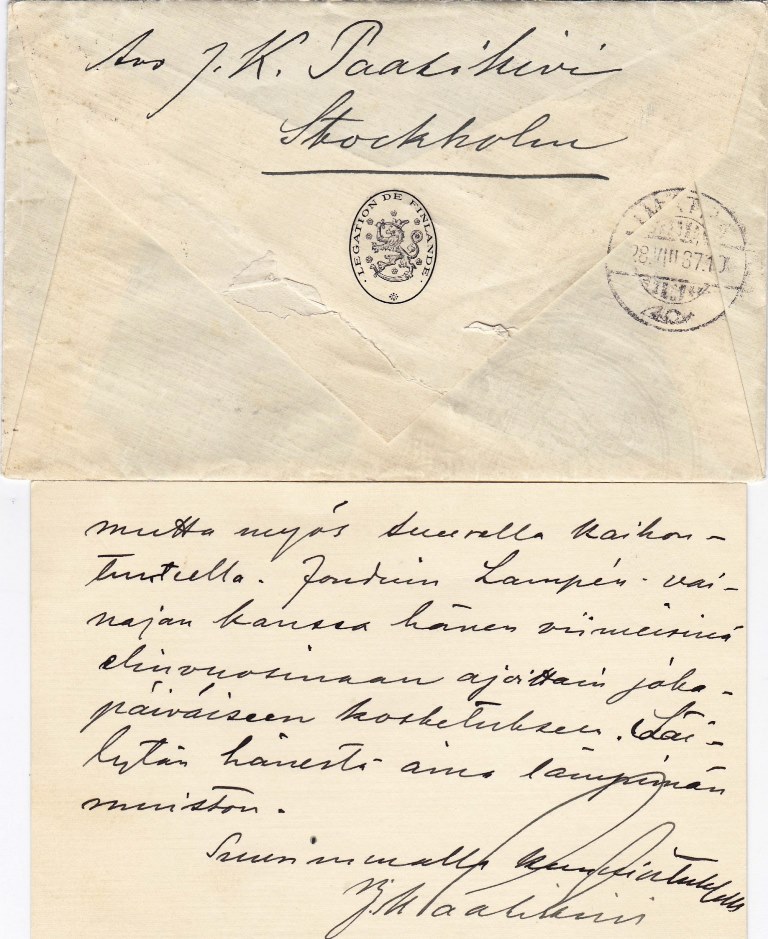 J. K. Paasikivi
Stockholm
· LEGATION DE FINLANDE ·
28.VIII 37.10
mutta myös suurella kaihon-
tunteella. Jouduin Lampén-vai-
najan kanssa hänen viimeisinä
elinvuosinaan ajoittain joka-
päiväiseen kosketukseen. Säi-
lytän hänestä aina lämpimän
muiston.
Suurimmalla kunnioituksella
J.K Paasikivi